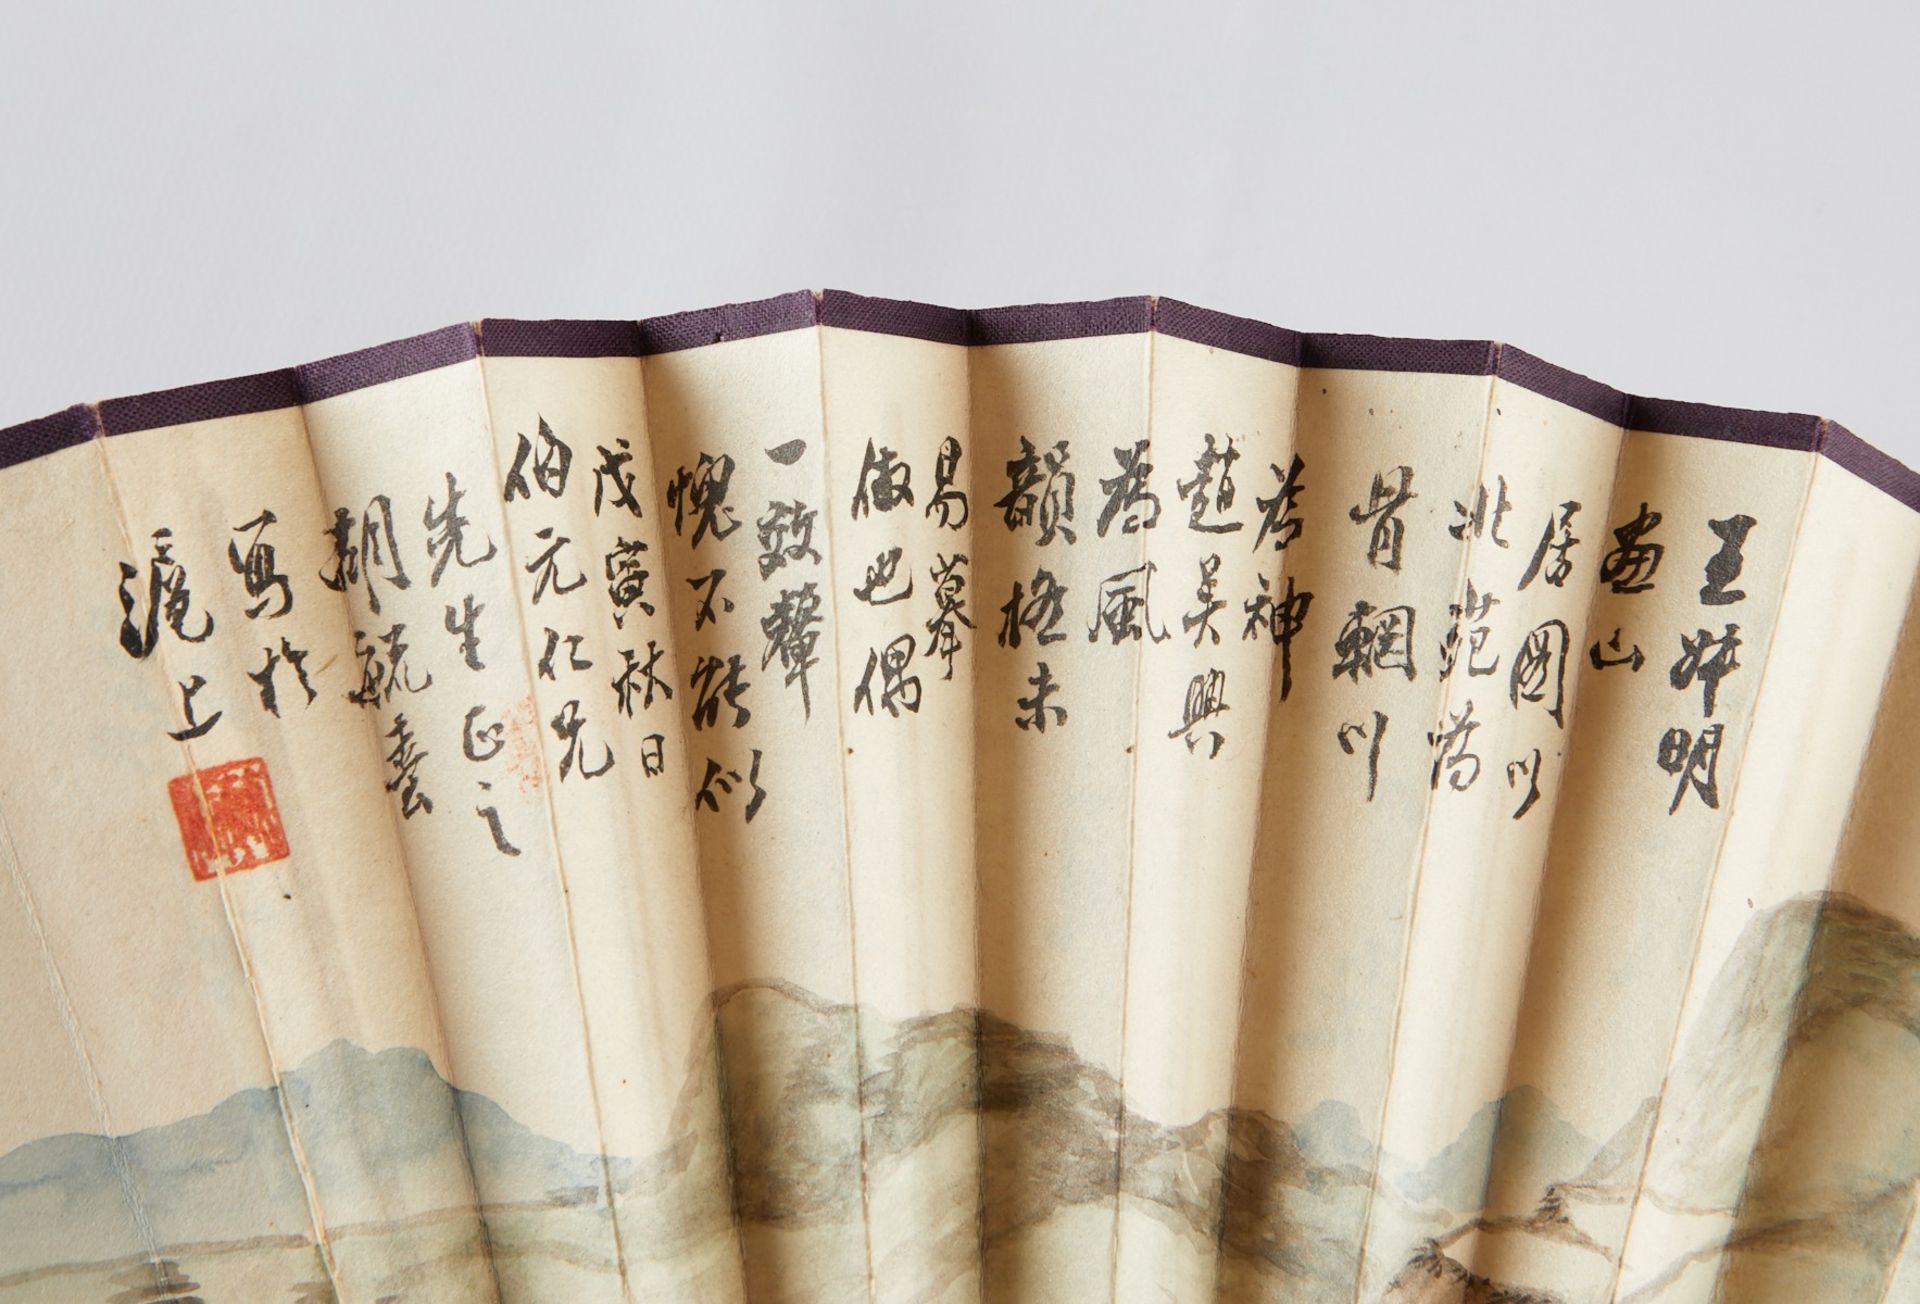 王叔明
畫山
居圖以
北苑為
骨輞川
為神
趙吴興
為風
韻極未
易摹
倣也偶
一效顰
愧不能似
戊寅秋日
伯元仁兄
先生正之
胡毓
寫於
滬上